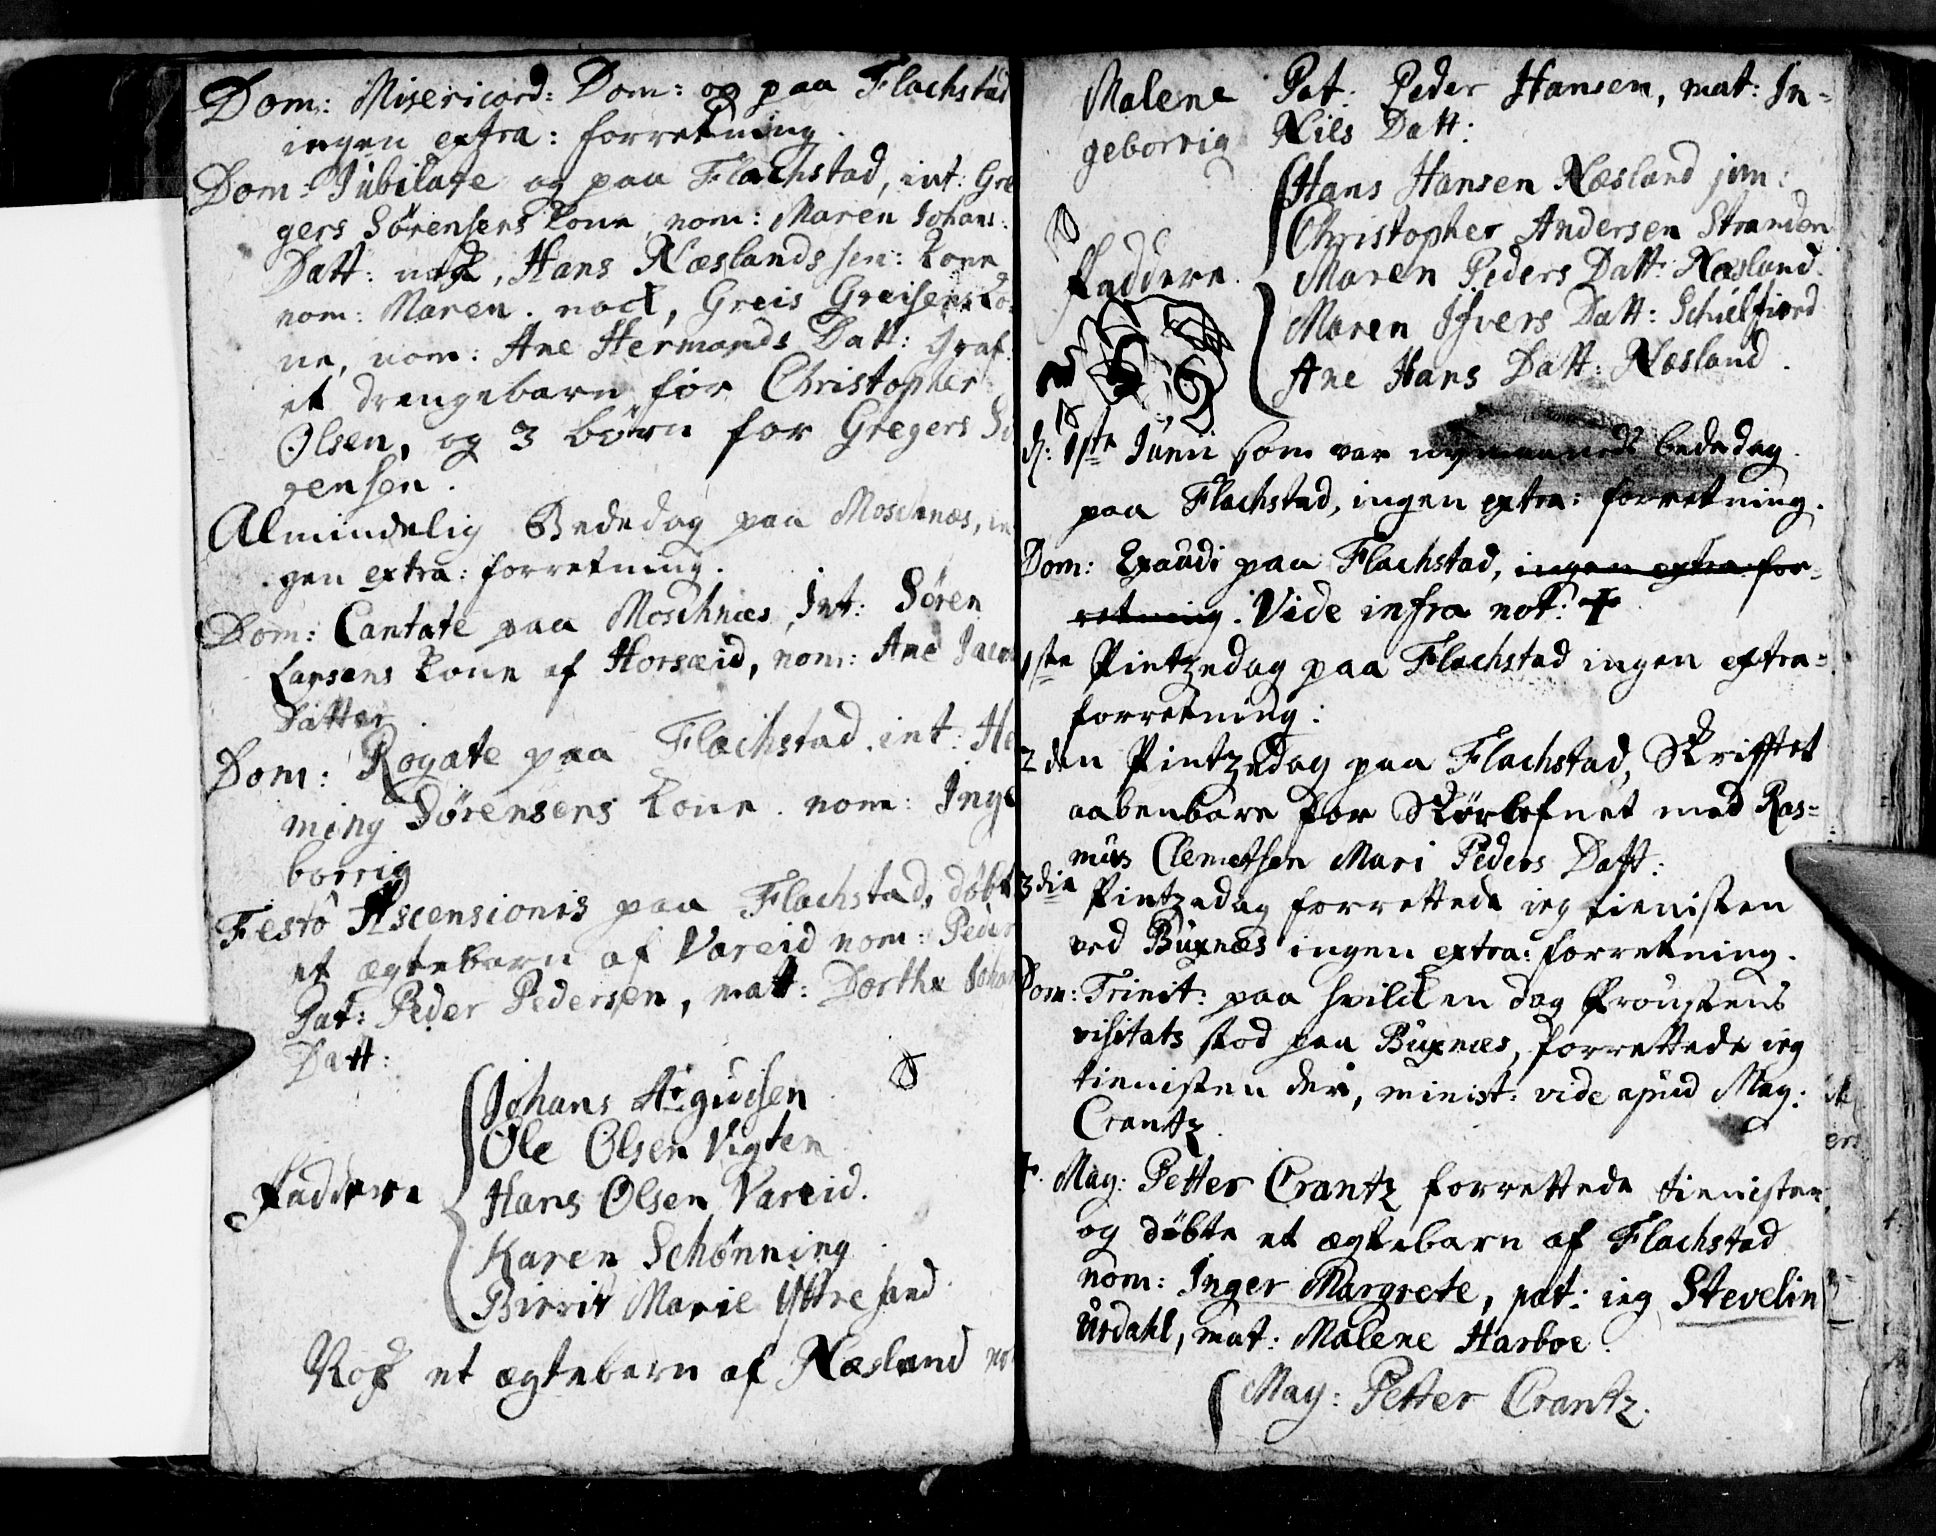 Dom: Misericord: Dom: og paa Flachstad
ingen extra: forretning.
Dom: Jubilate og paa Flachstad, int: Gre
gers Sørensens Kone, nom: Maren Johans:
Datt: nock, Hans Næslands sen: Kone
nom: Maren. nock, Greis Greisens Ko-
ne, nom: Ane Hermands Datt: Graf:
et drengebarn for Christopher
Olsen, og 3 börn for Gregers
gensen.
Almindelig Bededag paa Moschnæs, in
gen extra: forretning.
Dom: Cantate paa Moschnæs, Int: Sören
Larsens Kone af Horsæid, nom: Ane Jacob
Datter.
Dom: Rogate paa Flachstad. int: He
ming Sörensens Kone. nom: Inge
borrig
Festo Ascensionis paa Flachstad, döbt
et ægtebarn af Vareid nom: Peder
Pat: Peder Pedersen, mat: Dorthe Johan
Datt:
Johans Argudsen
Ole Olsen Vigten
Faddere
Hans Olsen Vareid.
Karen Schønning
Birrit Marie Yttresand
Nock et ægtebarn af Næsland no
Malene Pat: Peder Hansen, mat: In=
geborrig Nils Datt:
Hans Hansen Næsland jun:
Christopher Andersen Stranden
Faddere. Maren Peders Datt: Næsland.
Maren Ifvers Datt: Schielfiord
Ane Hans Datt: Næsland.
d: 1ste Junii som var nymaaneds bededag
paa Flachstad, ingen extra: forretning.
Dom: Exaudi paa Flachstad, ingen extra: for-
retning. Vide infra not: +
1ste Pintzedag paa Flachstad ingen extra=
forretning:
2den Pintzedag paa Flachstad, Skrifftet
aabenbare for Skörlefnet med Ras=
mus Clemetsen Mari Peders Datt:
3die Pintzedag forrettede jeg tienisten
ved Buxnæs ingen extra: forretning.
Dom: Trinit: paa hvilcken dag Proustens
visitats stod paa Buxnæs, forrettede ieg
tienisten der, minist: vide apud Mag:
Crantz.
+. Mag: Petter Crantz forrettede tienisten
og döbte et ægtebarn af Flachstad
nom: Inger Margrete, pat: ieg Stevelin
Urdahl, mat: Malene Harboe.
Mag: Petter Crantz.